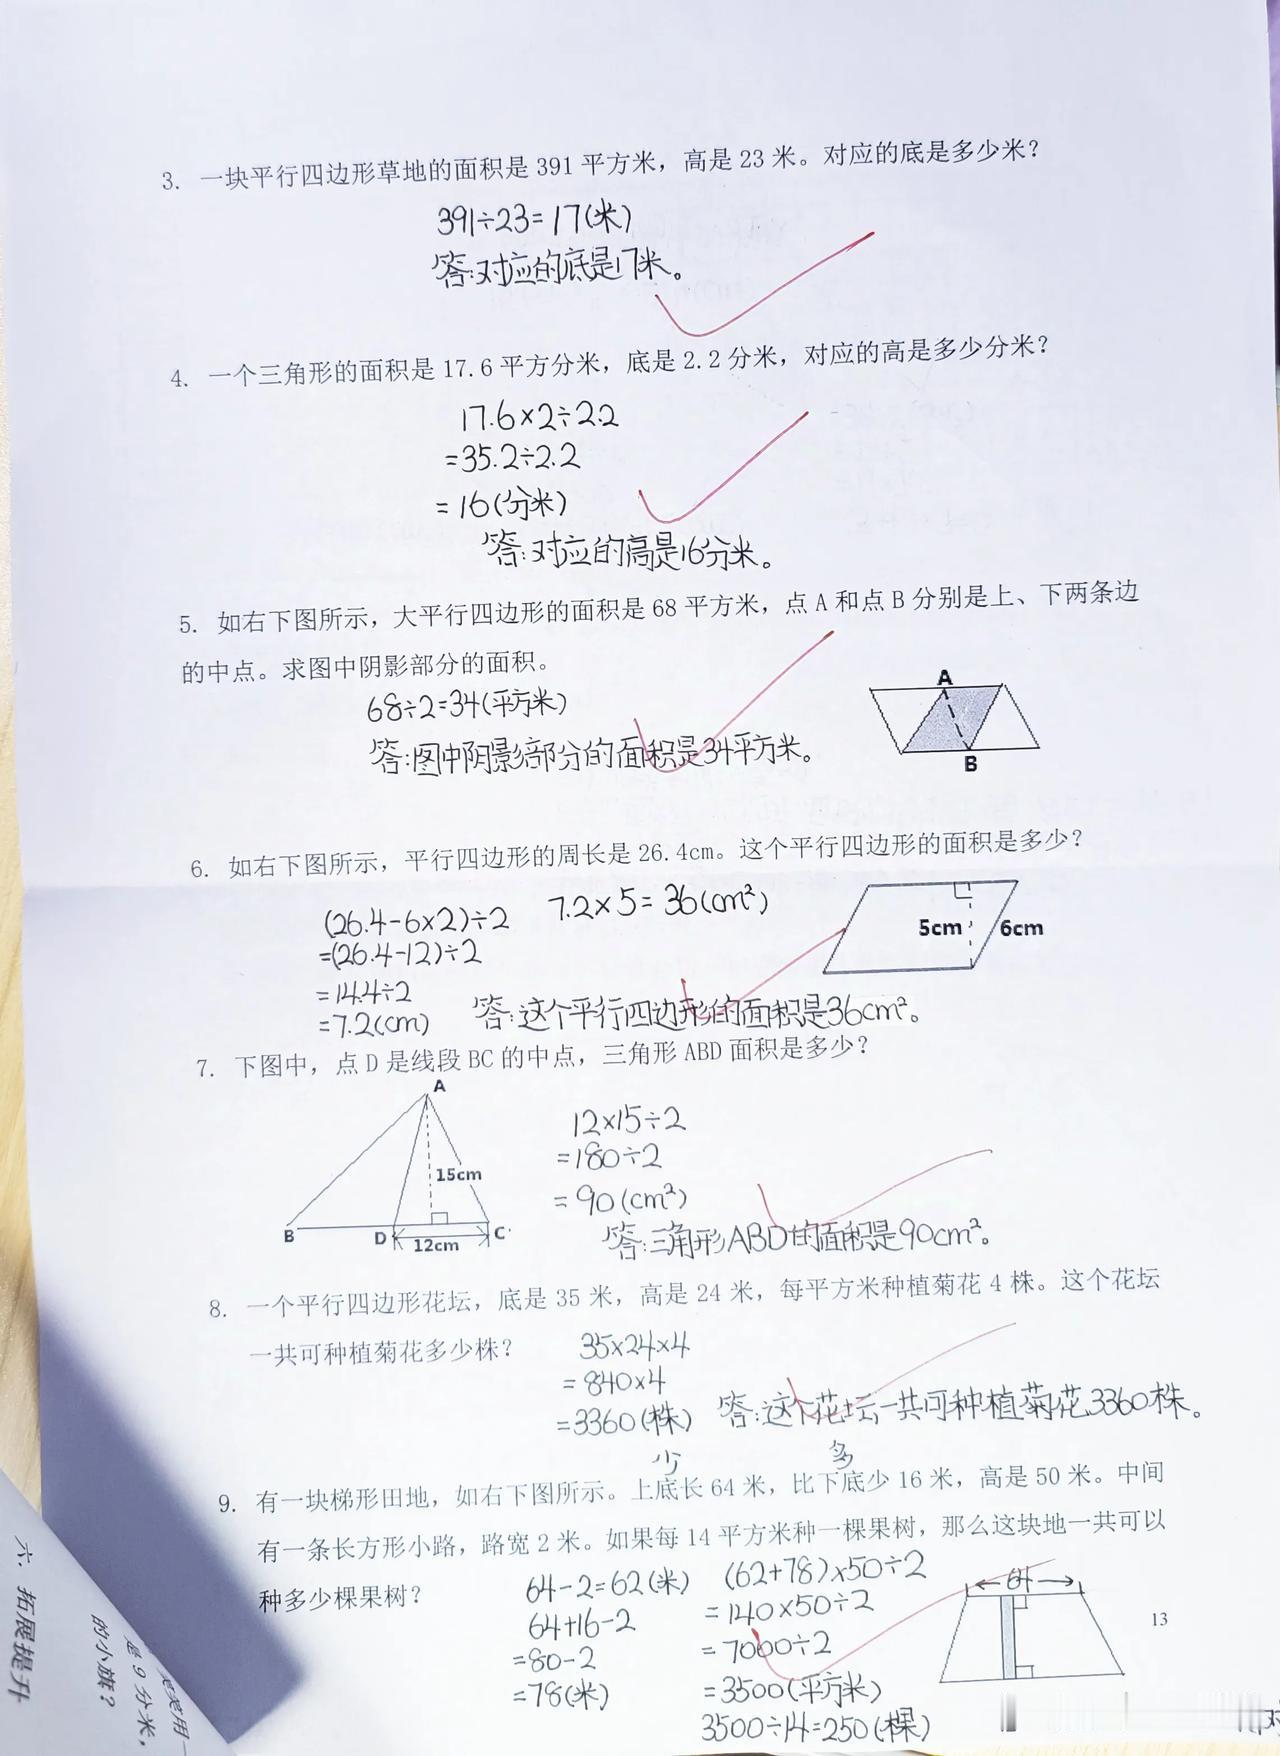 3. 一块平行四边形草地的面积是 391 平方米，高是 23 米。对应的底是多少米？
391÷23=17(米)
答:对应的底是17米。
4. 一个三角形的面积是 17.6 平方分米，底是 2.2 分米，对应的高是多少分米？
17.6×2÷2.2
=35.2÷2.2
=16(分米)
答:对应的高是16分米。
5. 如右下图所示，大平行四边形的面积是 68 平方米，点 A 和点 B 分别是上、下两条边
的中点。求图中阴影部分的面积。
68÷2=34(平方米)
答:图中阴影部分的面积是34平方米。
A
B
6. 如右下图所示，平行四边形的周长是 26.4cm。这个平行四边形的面积是多少？
(26.4-6×2)÷2
=(26.4-12)÷2
=14.4÷2
=7.2(cm)
7.2×5=36(cm²)
答:这个平行四边形的面积是36cm²。
5cm
6cm
7. 下图中，点 D 是线段 BC 的中点，三角形 ABD 面积是多少？
A
15cm
B
D
12cm
C
12×15÷2
=180÷2
=90(cm²)
答:三角形ABD的面积是90cm²。
8. 一个平行四边形花坛，底是 35 米，高是 24 米，每平方米种植菊花 4 株。这个花坛
一共可种植菊花多少株？
35×24×4
=840×4
=3360(株)
答:这个花坛一共可种植菊花3360株。
少 多
9. 有一块梯形田地，如右下图所示。上底长 64 米，比下底少 16 米，高是 50 米。中间
有一条长方形小路，路宽 2 米。如果每 14 平方米种一棵果树，那么这块地一共可以
种多少棵果树？
64-2=62(米)
64+16-2
=80-2
=78(米)
(62+78)×50÷2
=140×50÷2
=7000÷2
=3500(平方米)
3500÷14=250(棵)
64
13
六、拓展提升
笑笑用一
是 9 分米，
的小旗？
对